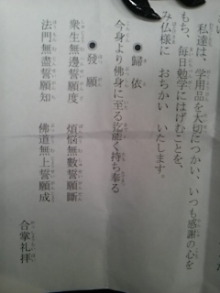 私達は、学用品を大切につかい、いつも感謝の心を
もち、毎日勉学にはげむことを、
み仏様に おちかい いたします。
●歸依
今身より佛身に至る迄能く持ち奉る
●發願
衆生無邊誓願度 煩惱無數誓願斷
法門無盡誓願知 佛道無上誓願成
合掌礼拝